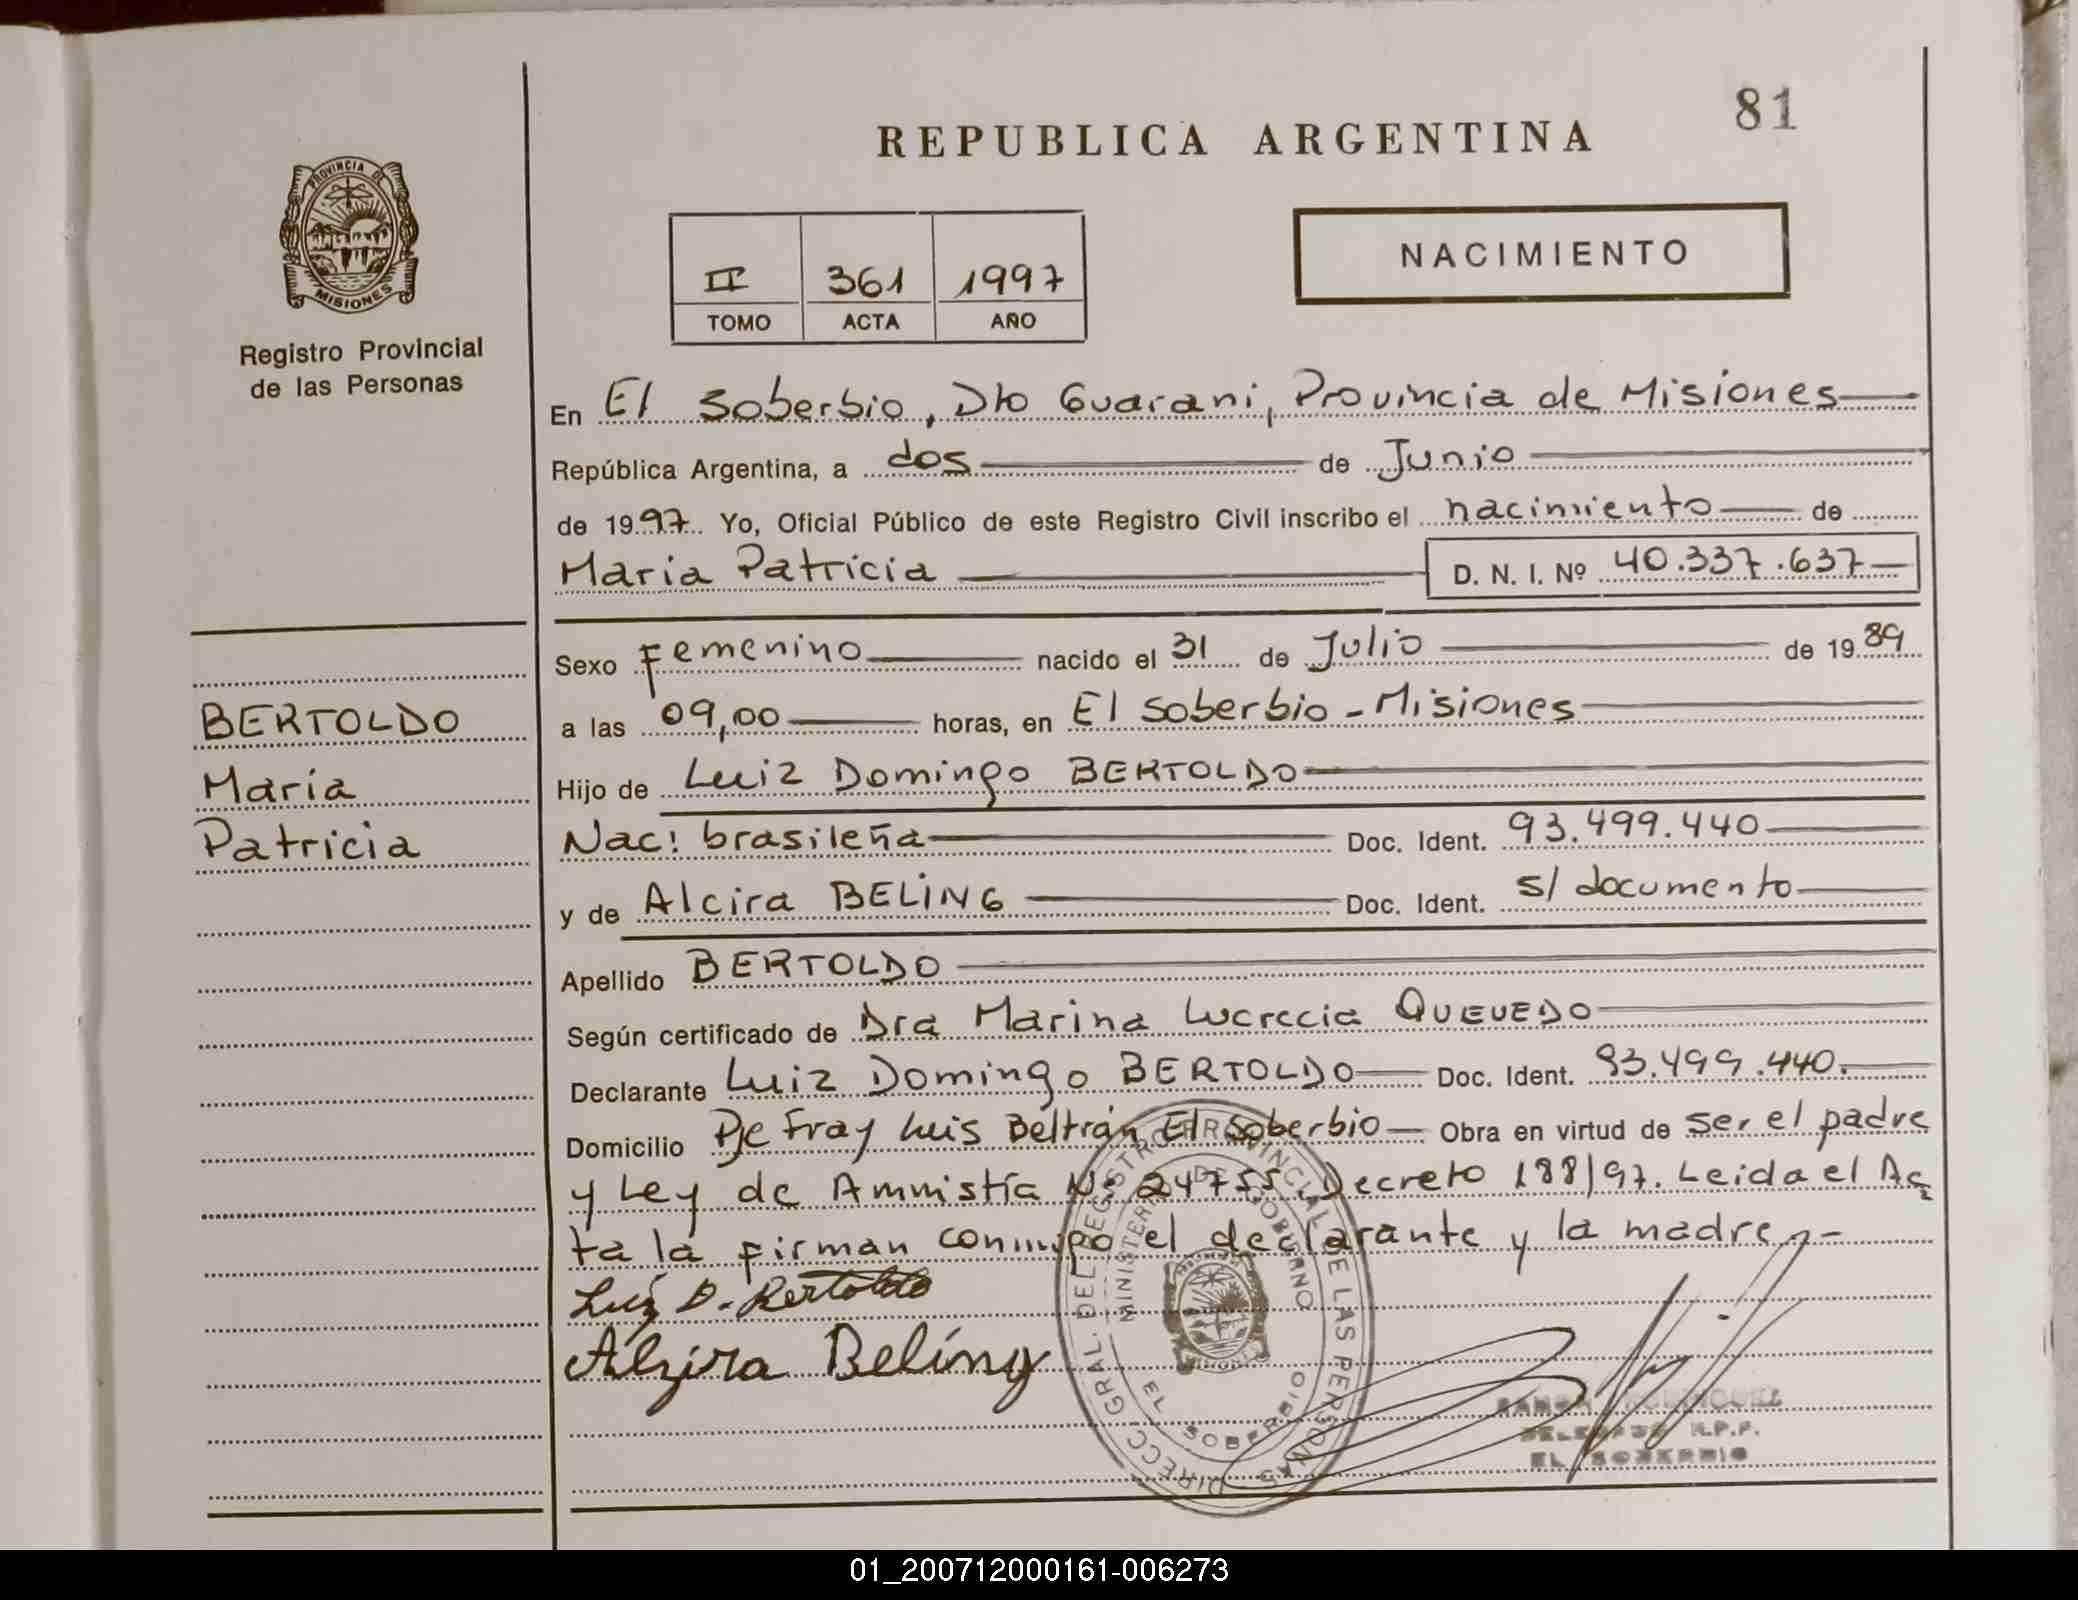 81
REPUBLICA ARGENTINA
PROVINCIA DE
MISIONES
Registro Provincial
de las Personas
NACIMIENTO
II 361 1997
TOMO ACTA AÑO
En El Soberbio, Dto Guarani, Provincia de Misiones
República Argentina, a dos de Junio
de 1997 Yo, Oficial Público de este Registro Civil inscribo el nacimiento de
Maria Patricia D. N. I. Nº 40.337.637
Sexo Femenino nacido el 31 de Julio de 1989
a las 09,00 horas, en El Soberbio - Misiones
Hijo de Luiz Domingo BERTOLDO
Nac: brasileña Doc. Ident. 93.499.440
y de Alcira BELING Doc. Ident. s/ documento
Apellido BERTOLDO
Según certificado de Dra Marina Lucrecia QUEVEDO
Declarante Luiz Domingo BERTOLDO Doc. Ident. 93.499.440.
Domicilio Pje Fray Luis Beltrán El Soberbio Obra en virtud de ser el padre
y Ley de Amnistía Nº 24755 Decreto 188/97. Leida el Ac
ta la firman conmigo el declarante y la madre
Luiz D. Bertoldo
Alzira Beling
BERTOLDO
María
Patricia
DIRECC. GRAL. DEL REGISTRO PROVINCIAL DE LAS PERSONAS
MINISTERIO DE GOBIERNO
EL SOBERBIO
R.P.P.
EL SOBERBIO
01_200712000161-006273